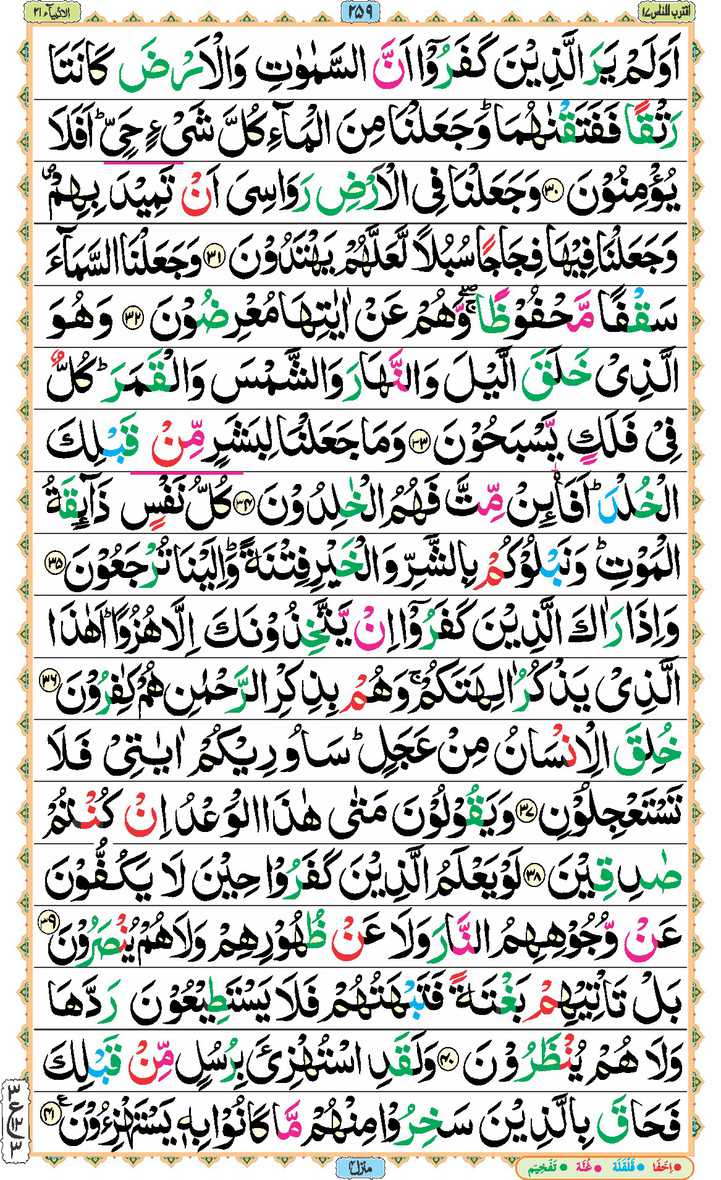 اقترب للناس ١٧
٢٥٩
الانبياء ٢١
اَوَلَمْ يَرَ الَّذِيْنَ كَفَرُوْۤا اَنَّ السَّمٰوٰتِ وَالْاَرْضَ كَانَتَا
رَتْقًا فَفَتَقْنٰهُمَا ؕ وَجَعَلْنَا مِنَ الْمَآءِ كُلَّ شَیْءٍ حَیٍّ ؕ اَفَلَا
يُؤْمِنُوْنَ ﴿۳۰﴾ وَجَعَلْنَا فِی الْاَرْضِ رَوَاسِیَ اَنْ تَمِيْدَ بِهِمْ ۪
وَجَعَلْنَا فِيْهَا فِجَاجًا سُبُلًا لَّعَلَّهُمْ يَهْتَدُوْنَ ﴿۳۱﴾ وَجَعَلْنَا السَّمَآءَ
سَقْفًا مَّحْفُوْظًا ۖۚ وَّهُمْ عَنْ اٰيٰتِهَا مُعْرِضُوْنَ ﴿۳۲﴾ وَهُوَ
الَّذِیْ خَلَقَ الَّيْلَ وَالنَّهَارَ وَالشَّمْسَ وَالْقَمَرَ ؕ كُلٌّ
فِیْ فَلَكٍ يَّسْبَحُوْنَ ﴿۳۳﴾ وَمَا جَعَلْنَا لِبَشَرٍ مِّنْ قَبْلِكَ
الْخُلْدَ ؕ اَفَا۠ئِنْ مِّتَّ فَهُمُ الْخٰلِدُوْنَ ﴿۳۴﴾ كُلُّ نَفْسٍ ذَآئِقَةُ
الْمَوْتِ ؕ وَنَبْلُوْكُمْ بِالشَّرِّ وَالْخَيْرِ فِتْنَةً ؕ وَاِلَيْنَا تُرْجَعُوْنَ ﴿۳۵﴾
وَاِذَا رَاٰكَ الَّذِيْنَ كَفَرُوْۤا اِنْ يَّتَّخِذُوْنَكَ اِلَّا هُزُوًا ؕ اَهٰذَا
الَّذِیْ يَذْكُرُ اٰلِهَتَكُمْ ۚ وَهُمْ بِذِكْرِ الرَّحْمٰنِ هُمْ كٰفِرُوْنَ ﴿۳۶﴾
خُلِقَ الْاِنْسَانُ مِنْ عَجَلٍ ؕ سَاُورِيْكُمْ اٰيٰتِیْ فَلَا
تَسْتَعْجِلُوْنِ ﴿۳۷﴾ وَيَقُوْلُوْنَ مَتٰی هٰذَا الْوَعْدُ اِنْ كُنْتُمْ
صٰدِقِيْنَ ﴿۳۸﴾ لَوْ يَعْلَمُ الَّذِيْنَ كَفَرُوْا حِيْنَ لَا يَكُفُّوْنَ
عَنْ وُّجُوْهِهِمُ النَّارَ وَلَا عَنْ ظُهُوْرِهِمْ وَلَا هُمْ يُنْصَرُوْنَ ﴿۳۹﴾
بَلْ تَاْتِيْهِمْ بَغْتَةً فَتَبْهَتُهُمْ فَلَا يَسْتَطِيْعُوْنَ رَدَّهَا
وَلَا هُمْ يُنْظَرُوْنَ ﴿۴۰﴾ وَلَقَدِ اسْتُهْزِئَ بِرُسُلٍ مِّنْ قَبْلِكَ
فَحَاقَ بِالَّذِيْنَ سَخِرُوْا مِنْهُمْ مَّا كَانُوْا بِهٖ يَسْتَهْزِءُوْنَ ﴿۴۱﴾ ع
منزل ۴
اِخفَا قَلْقَلَة غُنَّة تَفْخِيْم